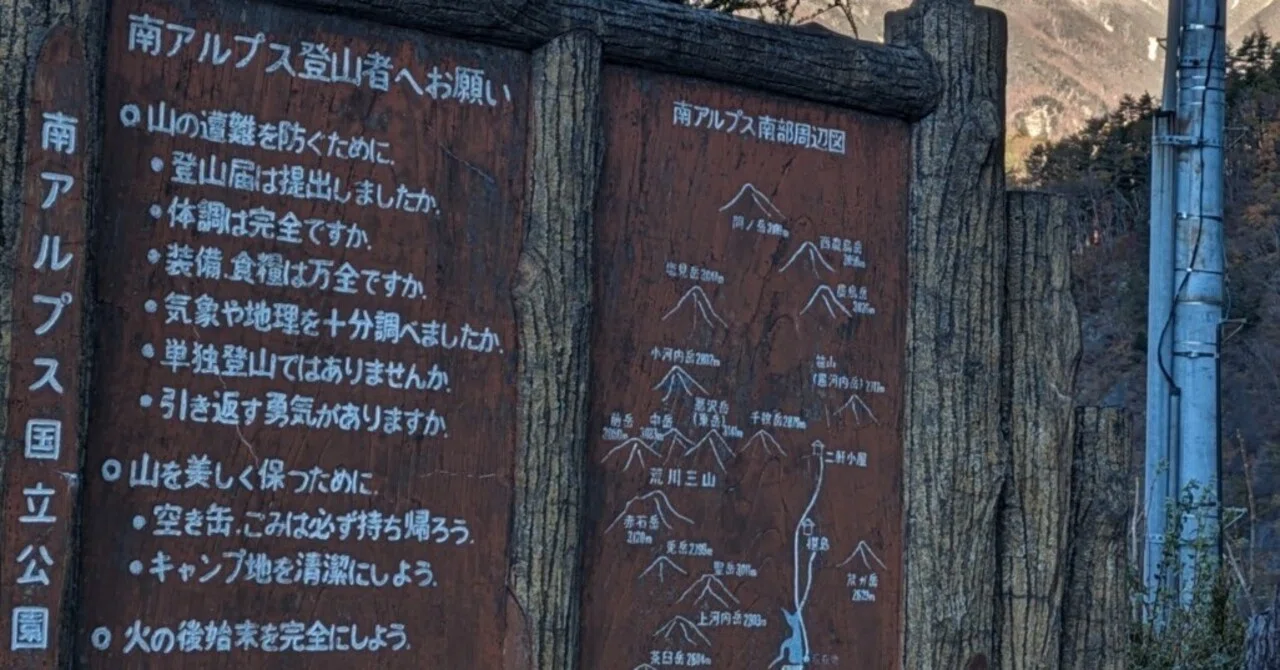 南アルプス国立公園
南アルプス登山者へお願い
○山の遭難を防ぐために.
・登山届は提出しましたか.
・体調は完全ですか.
・装備.食糧は万全ですか.
・気象や地理を十分調べましたか.
・単独登山ではありませんか.
・引き返す勇気がありますか.
○山を美しく保つために.
・空き缶.ごみは必ず持ち帰ろう.
・キャンプ地を清潔にしよう.
○火の後始末を完全にしよう.
南アルプス南部周辺図
間ノ岳
西農鳥岳
塩見岳
農鳥岳
小河内岳2802m
笹山
(黒河内岳)
悪沢岳
(東岳)
前岳
中岳
千枚岳
二軒小屋
荒川三山
赤石岳
椹島
兎岳
聖岳
上河内岳2803m
茶臼岳2604m